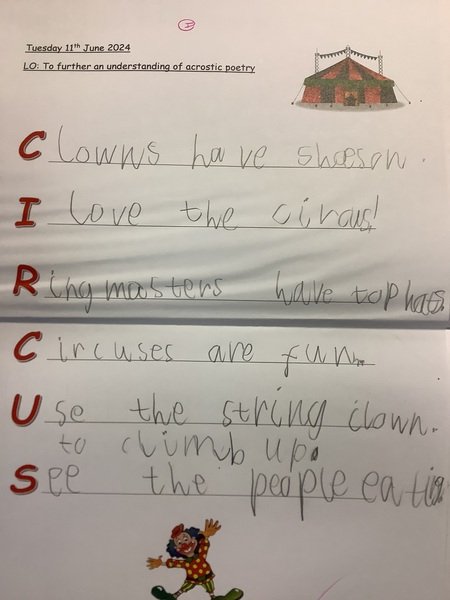 Tuesday 11th June 2024
LO: To further an understanding of acrostic poetry
Clowns have shoeson.
I love the circus!
Ringmasters have top hats.
Circuses are fun.
Use the string clown.
to climb up.
See the people eating